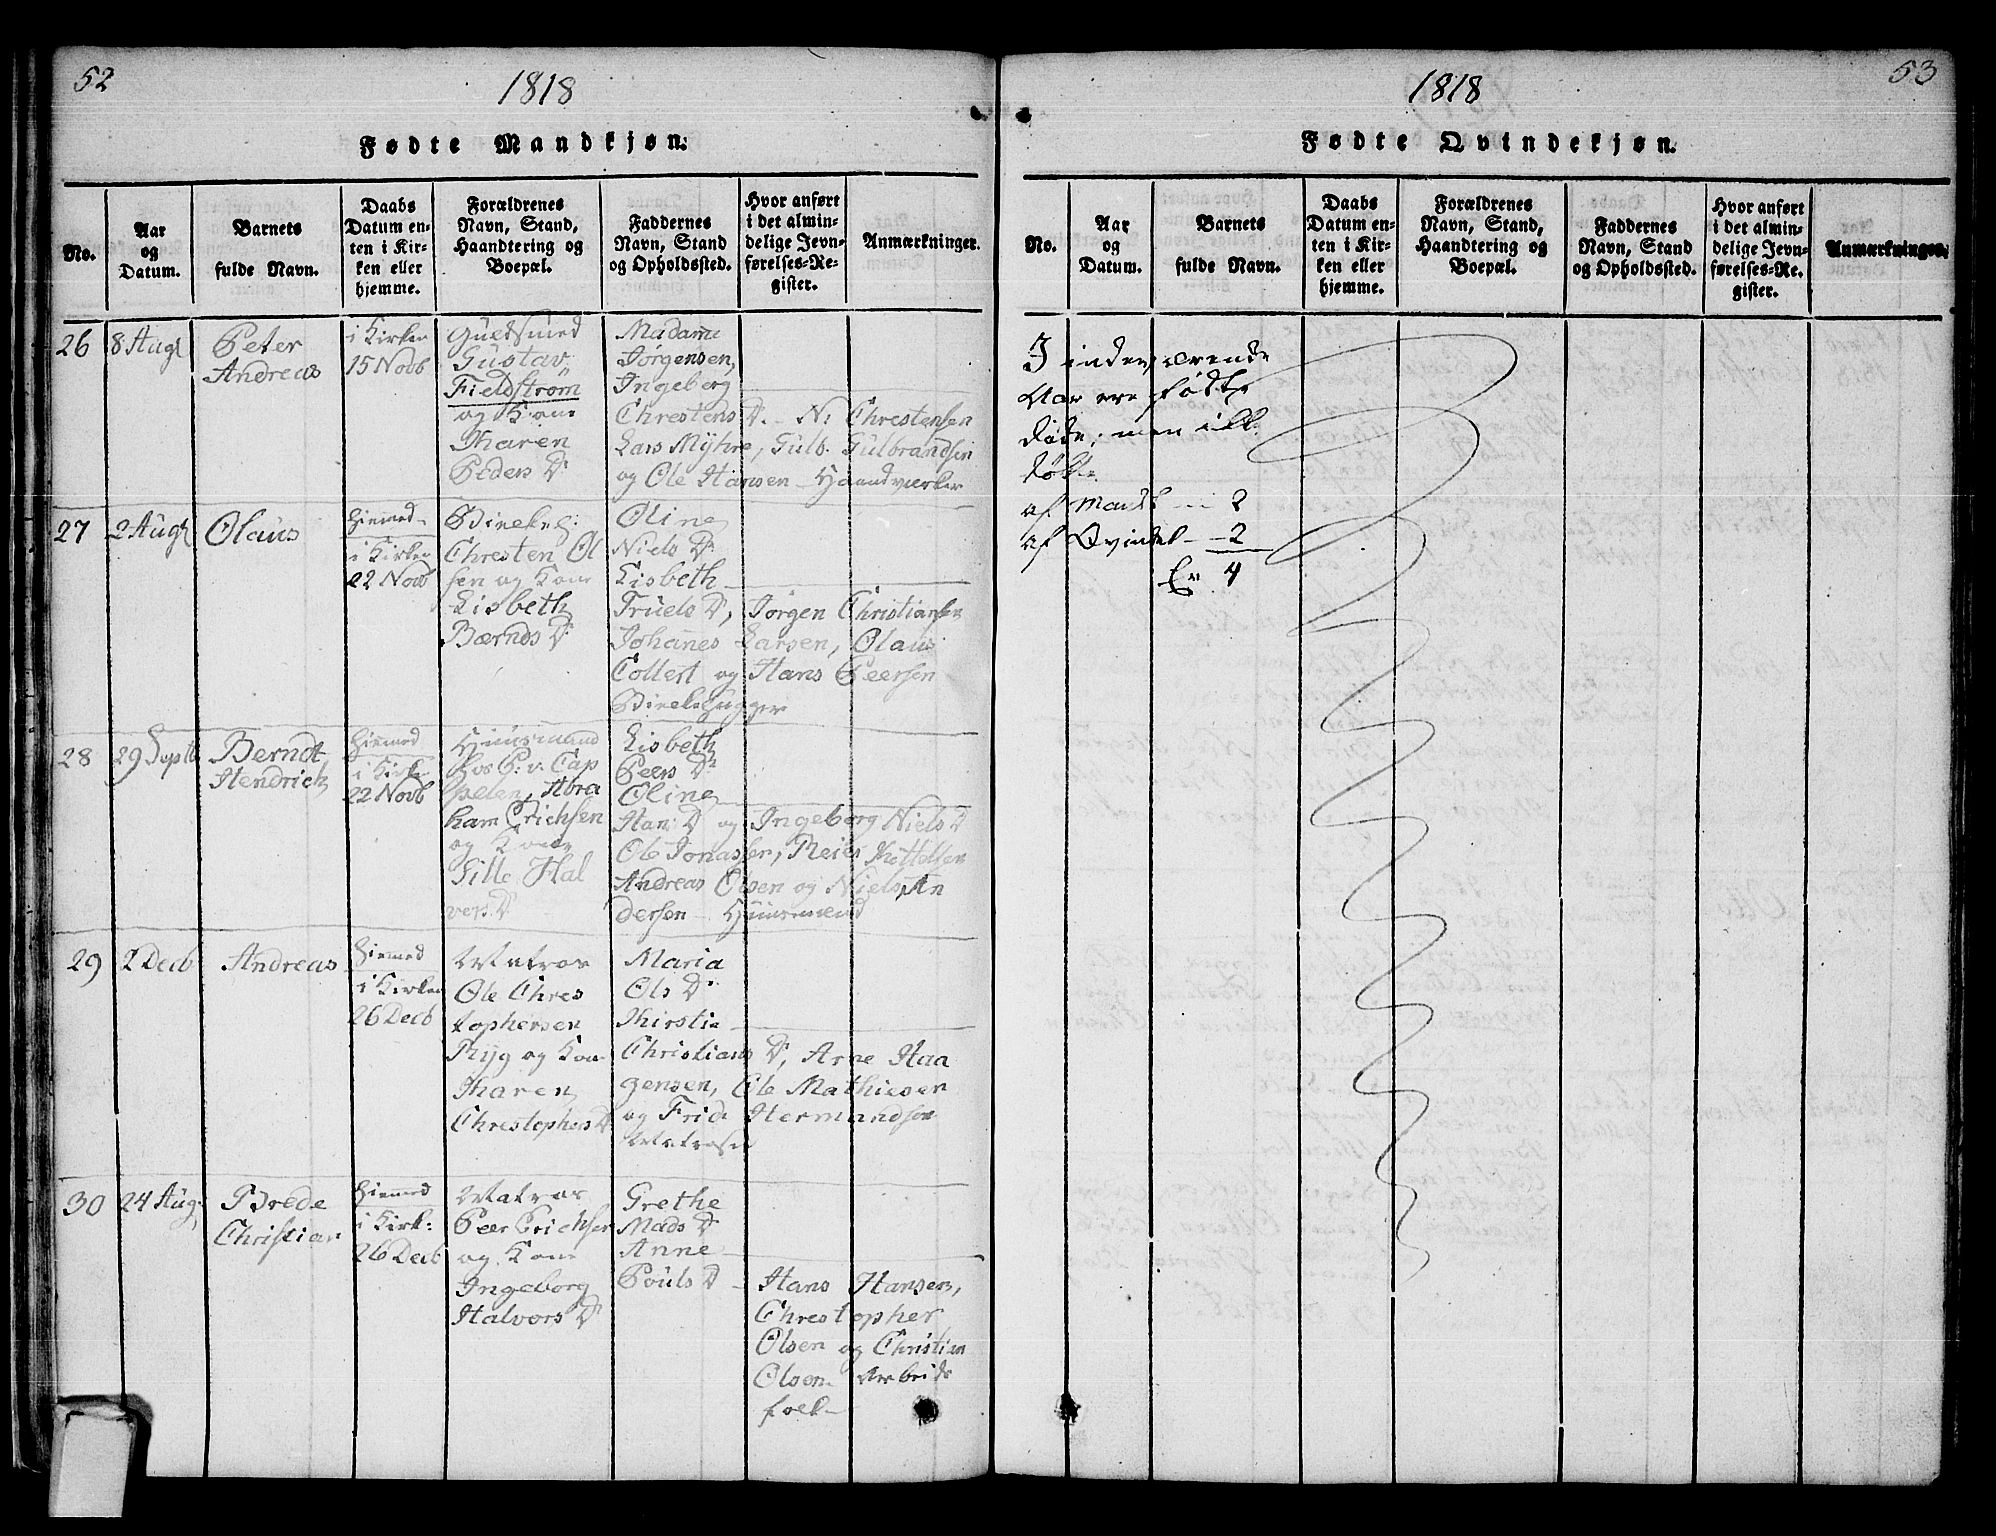 52
1818
Fødte Mandkjøn.
No.
Aar
og
Datum.
Barnets
fulde Navn.
Daabs
Datum en-
ten i Kir-
ken eller
hjemme.
Forældrenes
Navn, Stand,
Haandtering og
Boepæl.
Faddernes
Navn, Stand
og Opholdssted.
Hvor anført
i det almin-
delige Jevn-
førelses-Re-
gister.
Anmærkninger.
26
8 Augſ
Peter
Andreas
i Kirken
15 Novb
Guldsmed
Gustav
Fieldstrøm
og Kone
Karen
Peders D:
Madame
Jørgensen,
Ingeberg
Chrestens D: N: Chrestensen
Lars Myhre, Gulb. Gulbrandsen
og Ole Hansen Haandværker
27
2 Augſ
Olaus
Hiemed
i Kirken
22 Novb
Chresten Ol
sen og Kone
Lisbeth
Bærnds D:
Oline
Niels D:
Lisbeth
Truels D:, Jørgen Christiansen
Johanes Larsen, Olaus
Collert og Hans Peersen
28
29 Septb
Berndt
Hendrich
Hiemed
i Kirke
22 Novb
Huusmand
hos P: v: Cap
pelen, Abra
ham Erichsen
og Kone
Sille Hal
vers D:
Lisbeth
Peers D:
Oline
Hans D: og Ingeborg Niels D:
Ole Jonassen, Reier Kittelsen
Andreas Olsen og Niels An
dersen Huusmænd
29
2 Decb
Andreas
Hiemed
i Kirken
26 Decb
Matros
Ole Chres
tophersen
Ryg og Kone
Karen
Christophers D:
Maria
Ols D:
Kirstie
Christians D:, Arne Haa
gensen, Ole Mathiesen
og Frid: Hermandsen
Matroser
30
24 Aug:
Brede
Christian
Hiemed
i Kirk:
26 Decb
Matros
Peer Erichsen
og Kone
Ingeborg
Halvors D:
Grethe
Mads D:
Anne
Pouls D:
Hans Hansen,
Christopher
Olsen og Christian
Olsen Arbeids
folk
53
1818
Fødte Qvindekjøn.
No.
Aar
og
Datum.
Barnets
fulde Navn.
Daabs
Datum en-
ten i Kir-
ken eller
hjemme.
Forældrenes
Navn, Stand,
Haandtering og
Boepæl.
Faddernes
Navn, Stand
og Opholdssted.
Hvor anført
i det almin-
delige Jevn-
førelses-Re-
gister.
Anmærkninger.
I indeværende
Aar ere fødte
døde, men ikke
døbte
af Mandk 2
af Qvindek 2
Er 4